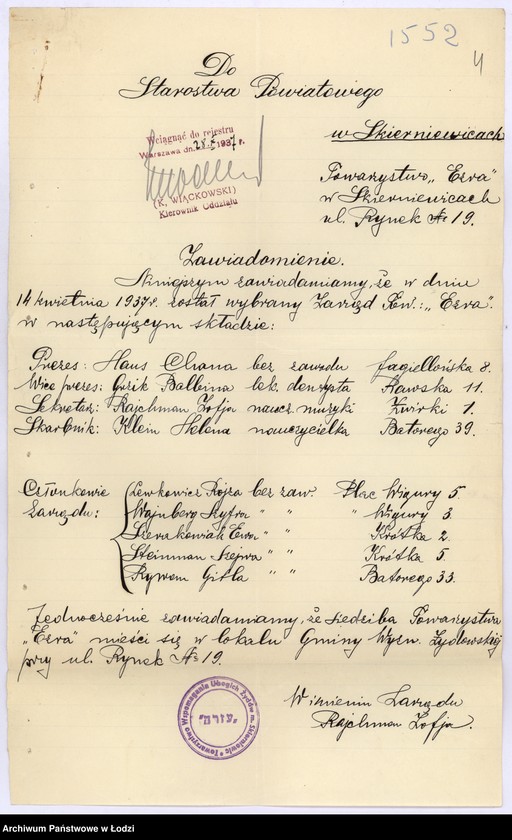 1552
4
Do
Starostwa Powiatowego
w Skierniewicach
Wciągnąć do rejestru
Warszawa dn. 28.5 1937 r.
(K. WIĄCKOWSKI)
Kierownik Oddziału
Towarzystwo „Ezra”
w Skierniewicach
ul. Rynek № 19.
Zawiadomienie.
Niniejszym zawiadamiamy, że w dniu
14 kwietnia 1937r. został wybrany Zarząd Tow.: „Ezra”.
w następującym składzie:
Prezes: Haus Chana bez zawodu Jagiellońska 8.
Wice prezes: Gzik Balbina lek. dentysta Rawska 11.
Sekretarz: Rajchman Zofja naucz. muzyki Żwirki 1.
Skarbnik: Klein Helena nauczycielka Batorego 39.
Członkowie Lewkowicz Rojza bez zaw. Plac Wigury 5.
Zarządu: Wajnberg Szyfra " " " Wigury 3
Ewa " " Krótka 2.
Steinman " " Krótka 5
Rywem Gitla " " Batorego 33.
Jednocześnie zawiadamiamy, że siedziba Towarzystwa
„Ezra” mieści się w lokalu Gminy Wyzn. Żydowskiej
przy ul. Rynek № 19.
W imieniu Zarządu
Rajchman Zofja.
Towarzystwo Wspomagania Ubogich Żydów m. Skierniewic
"עזרה"
Archiwum Państwowe w Łodzi